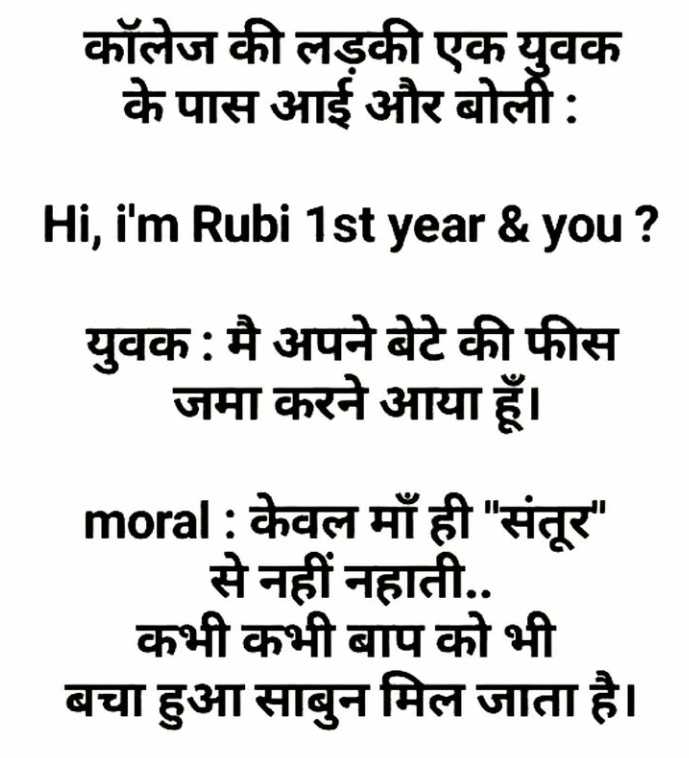 कॉलेज की लड़की एक युवक
के पास आई और बोली :
Hi, i'm Rubi 1st year & you ?
युवक : मै अपने बेटे की फीस
जमा करने आया हूँ।
moral : केवल माँ ही "संतूर"
से नहीं नहाती..
कभी कभी बाप को भी
बचा हुआ साबुन मिल जाता है।